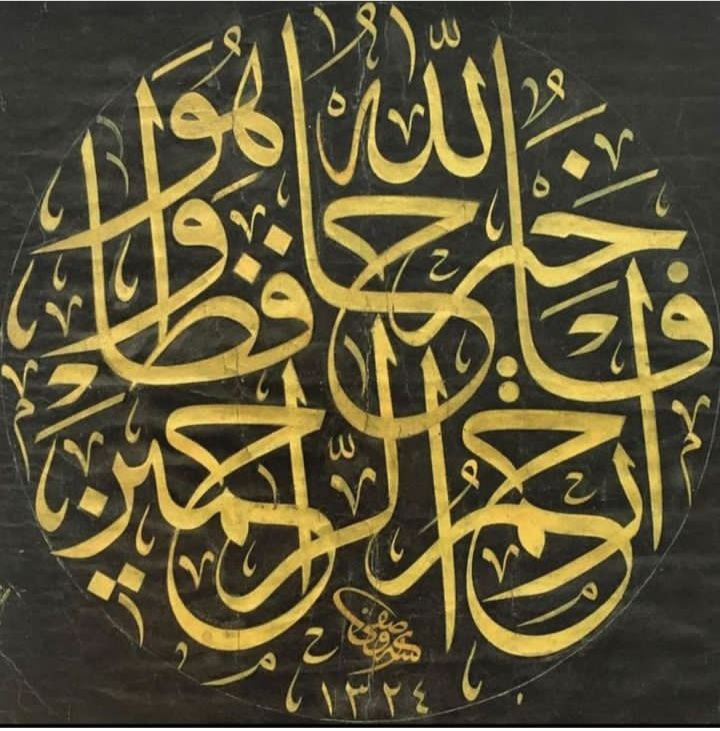 فالله خير حافظا وهو
ارحم الراحمين
عمر وصفى
١٣٢٤